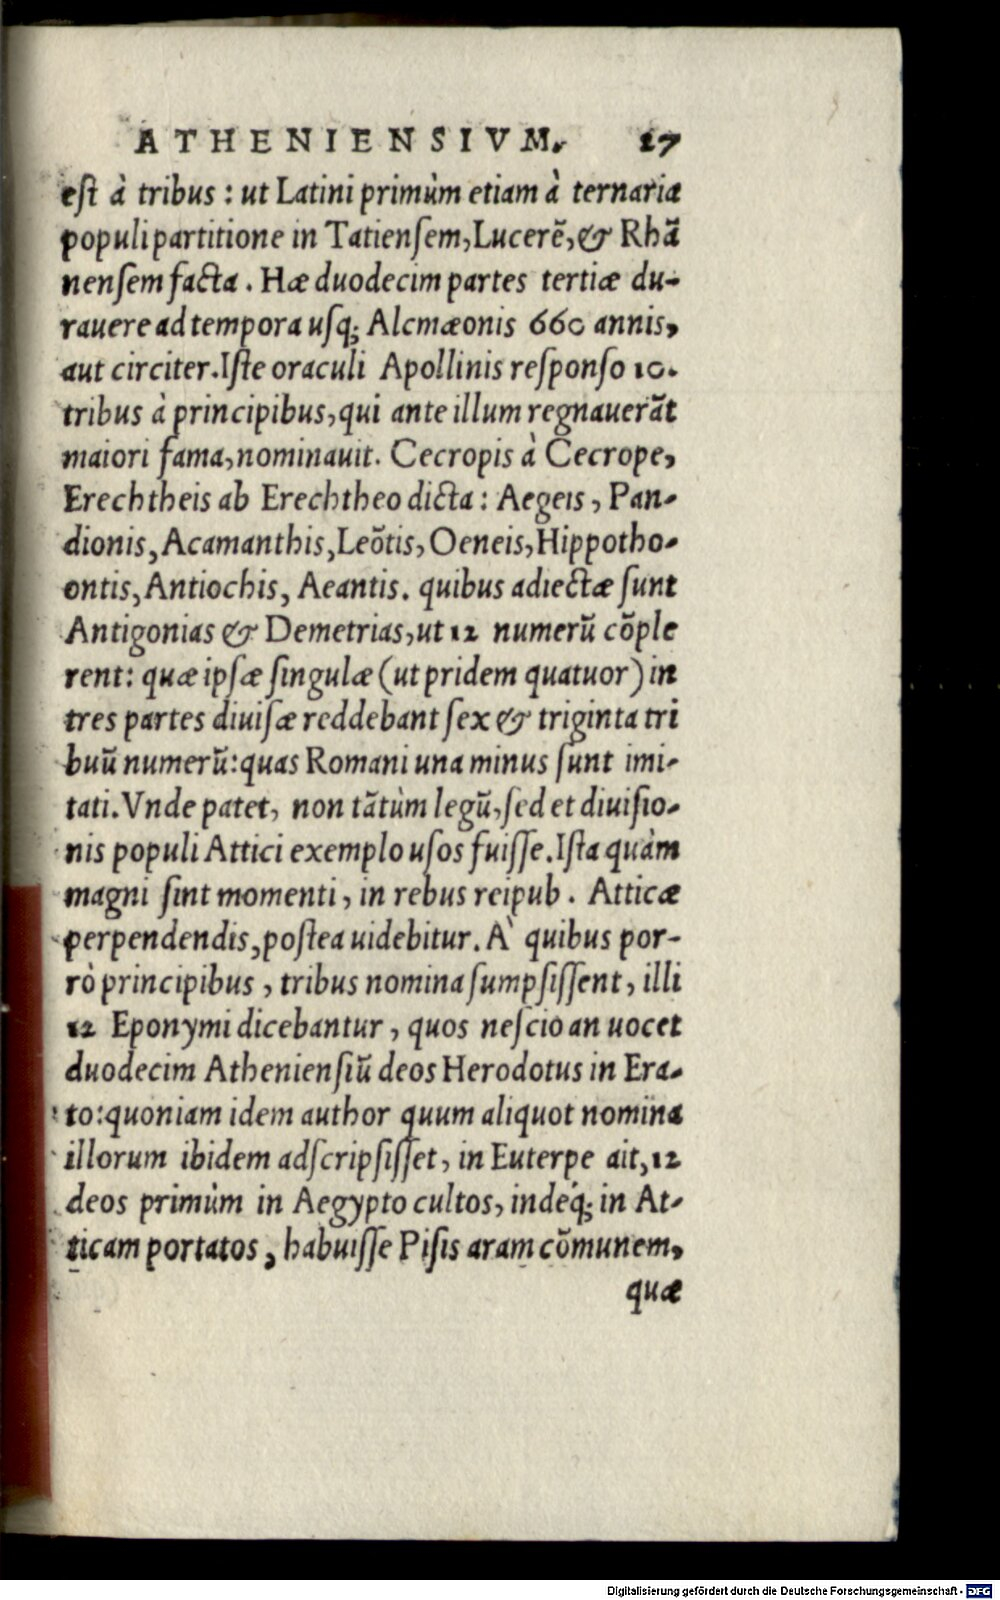 ATHENIENSIVM. 17
est à tribus : ut Latini primùm etiam à ternaria
populi partitione in Tatiensem, Lucerẽ, & Rhã
nensem facta . Hæ duodecim partes tertiæ du-
rauere ad tempora usq; Alcmæonis 660 annis,
aut circiter. Iste oraculi Apollinis responso 10.
tribus à principibus, qui ante illum regnauerãt
maiori fama, nominauit. Cecropis à Cecrope,
Erechtheis ab Erechtheo dicta : Aegeis , Pan-
dionis, Acamanthis, Leõtis, Oeneis, Hippotho-
ontis, Antiochis, Aeantis. quibus adiectæ sunt
Antigonias & Demetrias, ut 12 numerũ cõple
rent: quæ ipsæ singulæ (ut pridem quatuor) in
tres partes diuisæ reddebant sex & triginta tri
buũ numerũ: quas Romani una minus sunt imi-
tati. Vnde patet, non tãtùm legũ, sed et diuisio-
nis populi Attici exemplo usos fuisse. Ista quàm
magni sint momenti , in rebus reipub . Atticæ
perpendendis, postea uidebitur. À quibus por-
rò principibus , tribus nomina sumpsissent, illi
12 Eponymi dicebantur , quos nescio an uocet
duodecim Atheniensiũ deos Herodotus in Era-
to: quoniam idem author quum aliquot nomina
illorum ibidem adscripsisset, in Euterpe ait, 12
deos primùm in Aegypto cultos, indéq; in At-
ticam portatos , habuisse Pisis aram cõmunem,
quæ
Digitalisierung gefördert durch die Deutsche Forschungsgemeinschaft - DFG